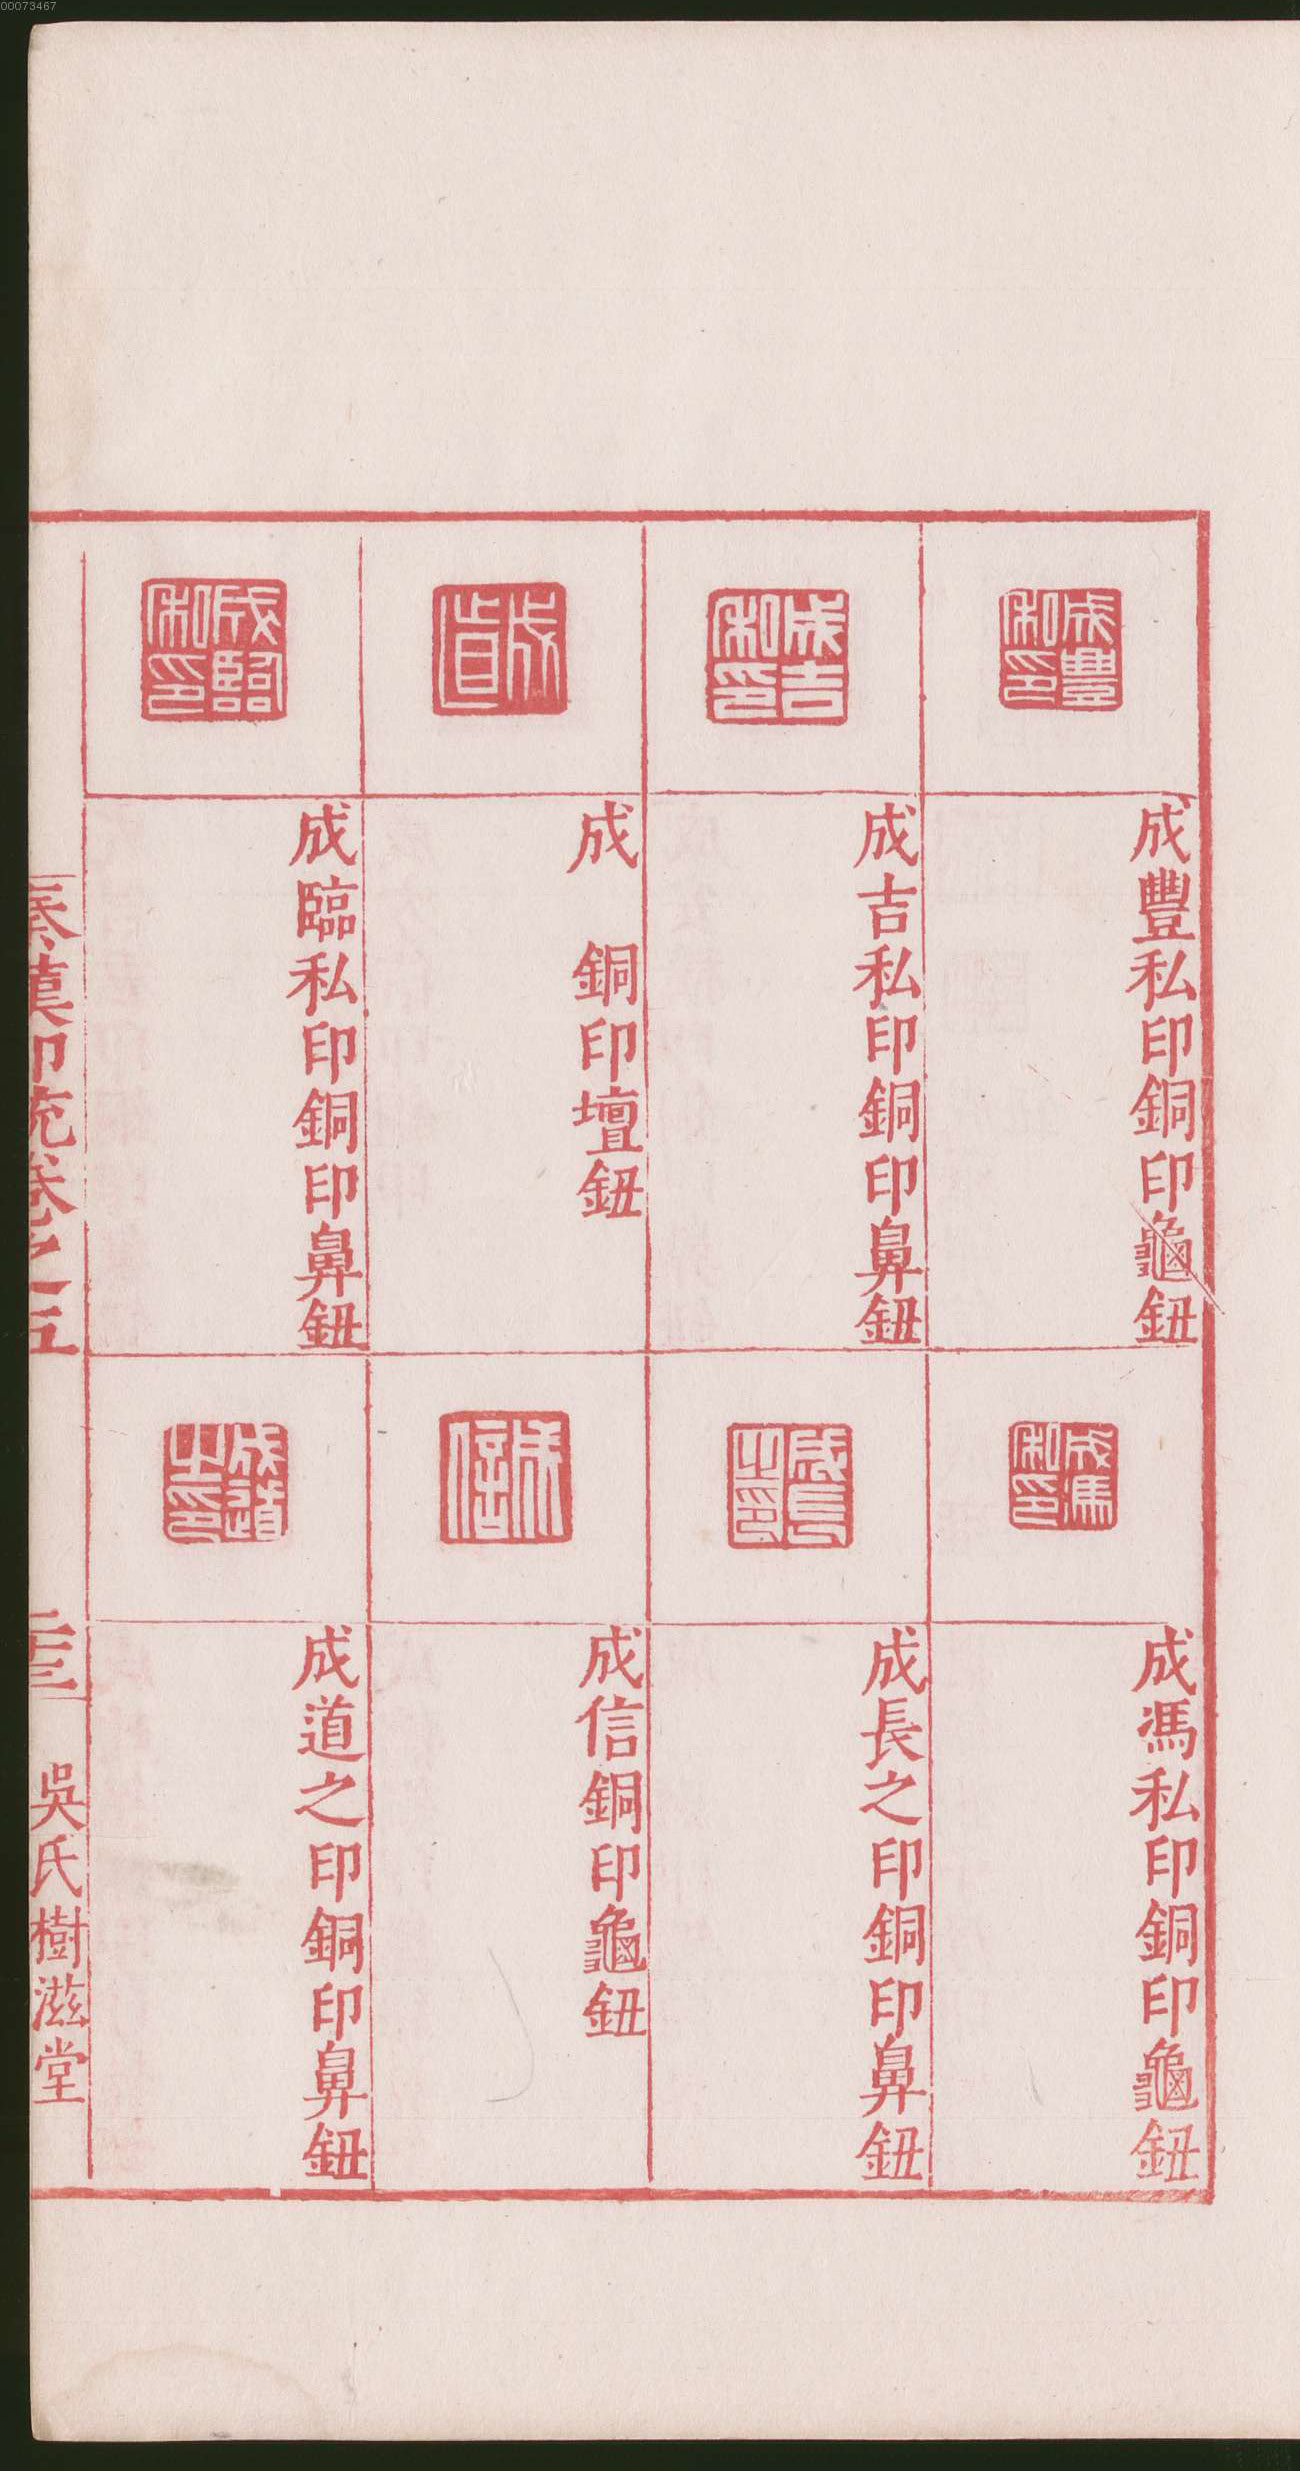 00073467
成豐私印
成豐私印銅印龜鈕
成吉私印
成吉私印銅印鼻鈕
成
成　銅印壇鈕
成臨私印
成臨私印銅印鼻鈕
成馮私印
成馮私印銅印龜鈕
成長之印
成長之印銅印鼻鈕
成信
成信銅印龜鈕
成道之印
成道之印銅印鼻鈕
秦漢印統卷之五
二十三
吳氏樹滋堂